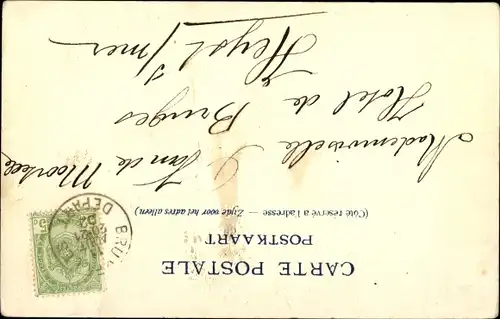 CARTE POSTALE
POSTKAART
(Côté réservé à l'adresse. — Zijde voor het adres alleen.)
BRU
DEPAR
5c
Mademoiselle
Van de Moortele
Hotel de Bruges
Heyst s/mer